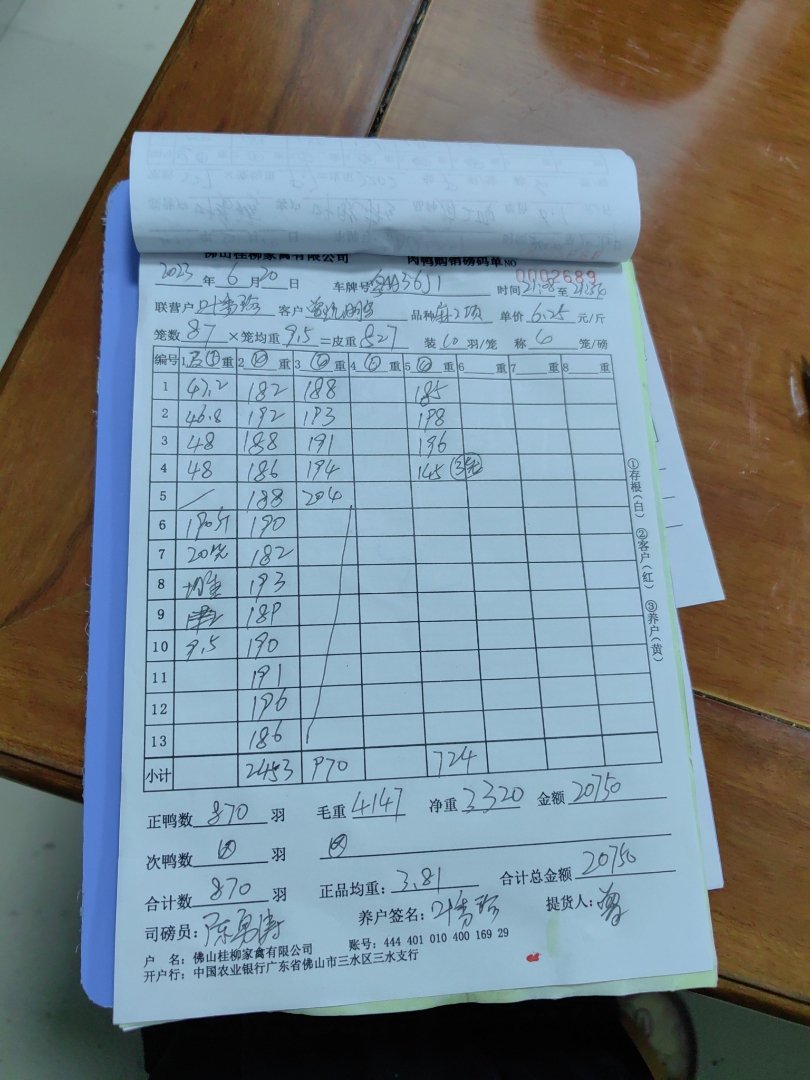 佛山桂柳家禽有限公司 肉鸭购销磅码单 NO 0002689
2023 年 6 月 20 日 车牌号 时间 21:08 至
联营户 客户 品种 单价 6.25 元/斤
笼数 87 ×笼均重 9.5 =皮重 827 装 10 羽/笼 称 6 笼/磅
编号 1 重 2 重 3 重 4 重 5 重 6 重 7 重 8 重
1 47.2 182 188 185
2 46.8 192 193 198
3 48 188 191 196
4 48 186 194 145
5 188 204
6 190斤 190
7 20 182
8 193
9 189
10 9.5 190
11 191
12 196
13 186
小计 2453 970 724
正鸭数 870 羽 毛重 4147 净重 3320 金额 20750
次鸭数 羽
合计数 870 羽 正品均重: 3.81 合计总金额 20750
司磅员: 陈勇涛 养户签名: 提货人:
户 名: 佛山桂柳家禽有限公司 账号: 444 401 010 400 169 29
开户行: 中国农业银行广东省佛山市三水区三水支行
①存根(白) ②客户(红) ③养户(黄)